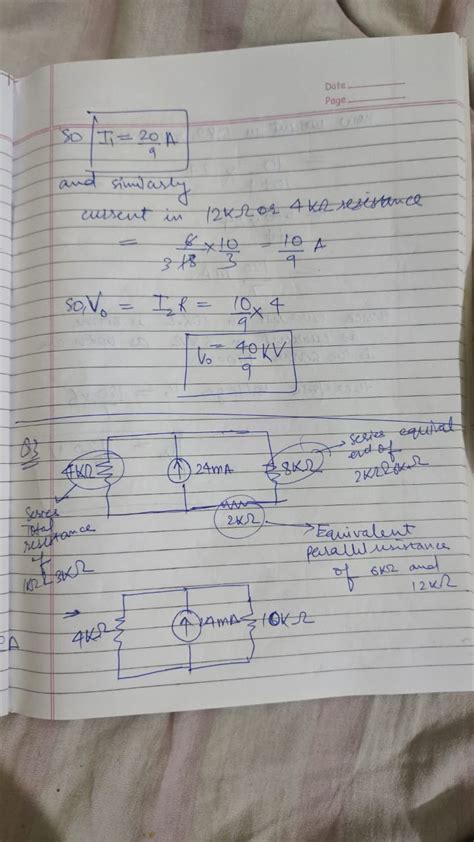 Date
Page
So I₁ = 20/9 A
and similarly
current in 12KΩ or 4KΩ resistance
= 6/18 × 10/3 = 10/9 A
3
so, V₀ = I₂R = 10/9 × 4
V₀ = 40/9 KV
Q3
4KΩ
24mA
8KΩ
2KΩ
series equival
end of
2KΩ
6KΩ
Series
total
resistance
of
1KΩ
3KΩ
Equivalent
parallel resistance
of 6KΩ and
12KΩ
⇒
4KΩ
24mA
10KΩ